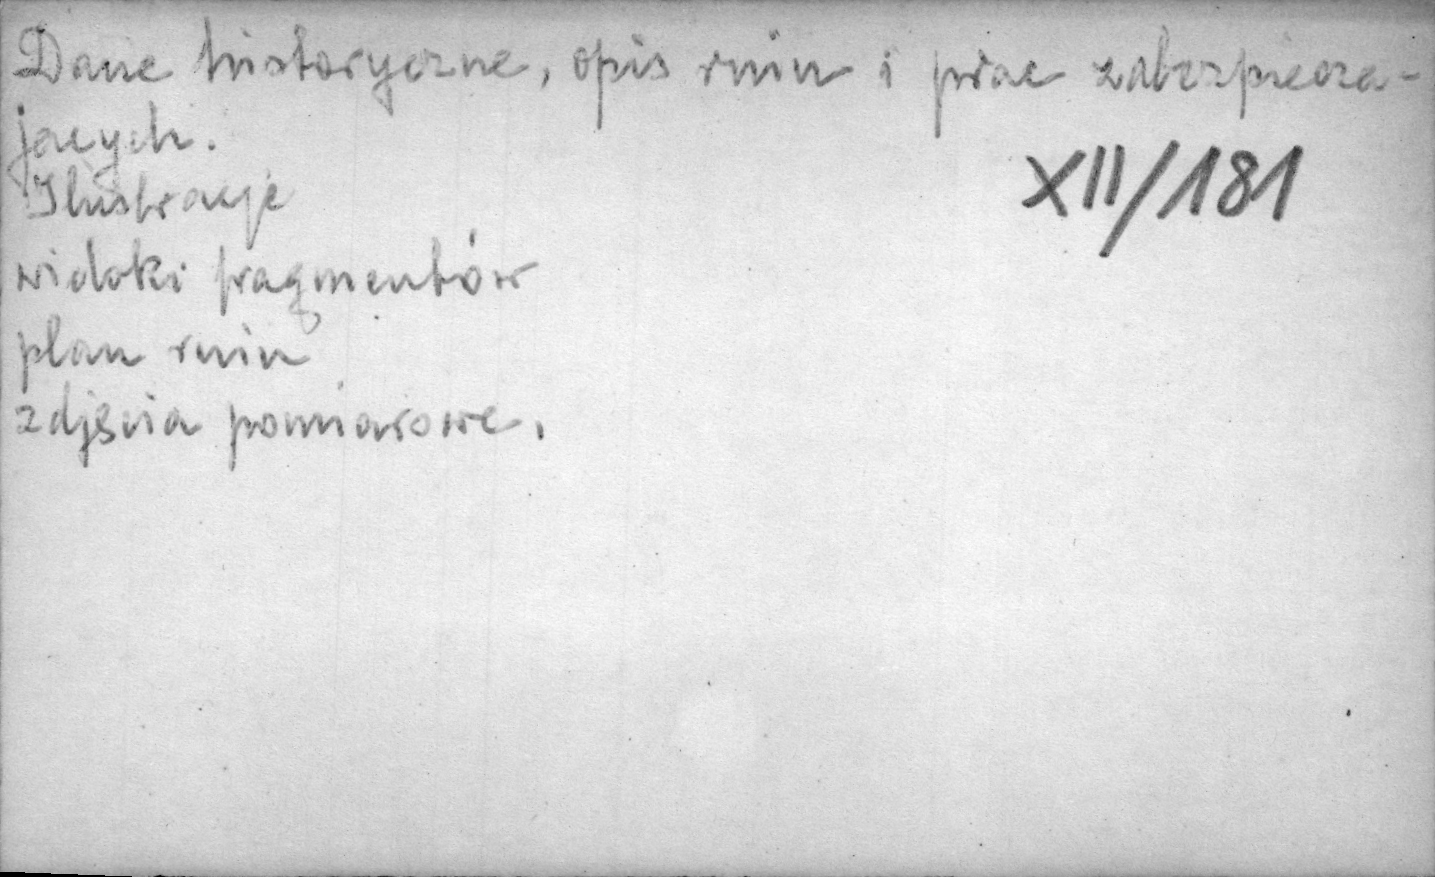 Dane historyczne, opis ruin i prac zabezpiecza-
jących.
XII/181
Ilustracje
widoki fragmentów
plan ruin
zdjęcia pomiarowe.